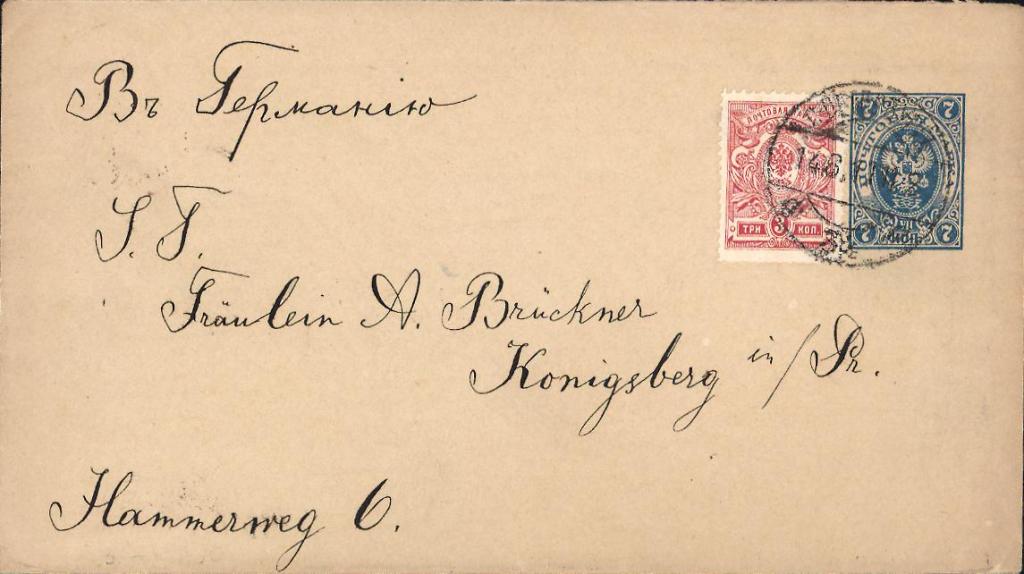 Въ Германію
S. T.
Fräulein A. Brückner
Konigsberg in/Pr.
Hammerweg 6.
ПОЧТОВАЯ
ТРИ 3 КОП.
7 7
ПОЧТОВАЯ МАРКА
7 КОП. 7